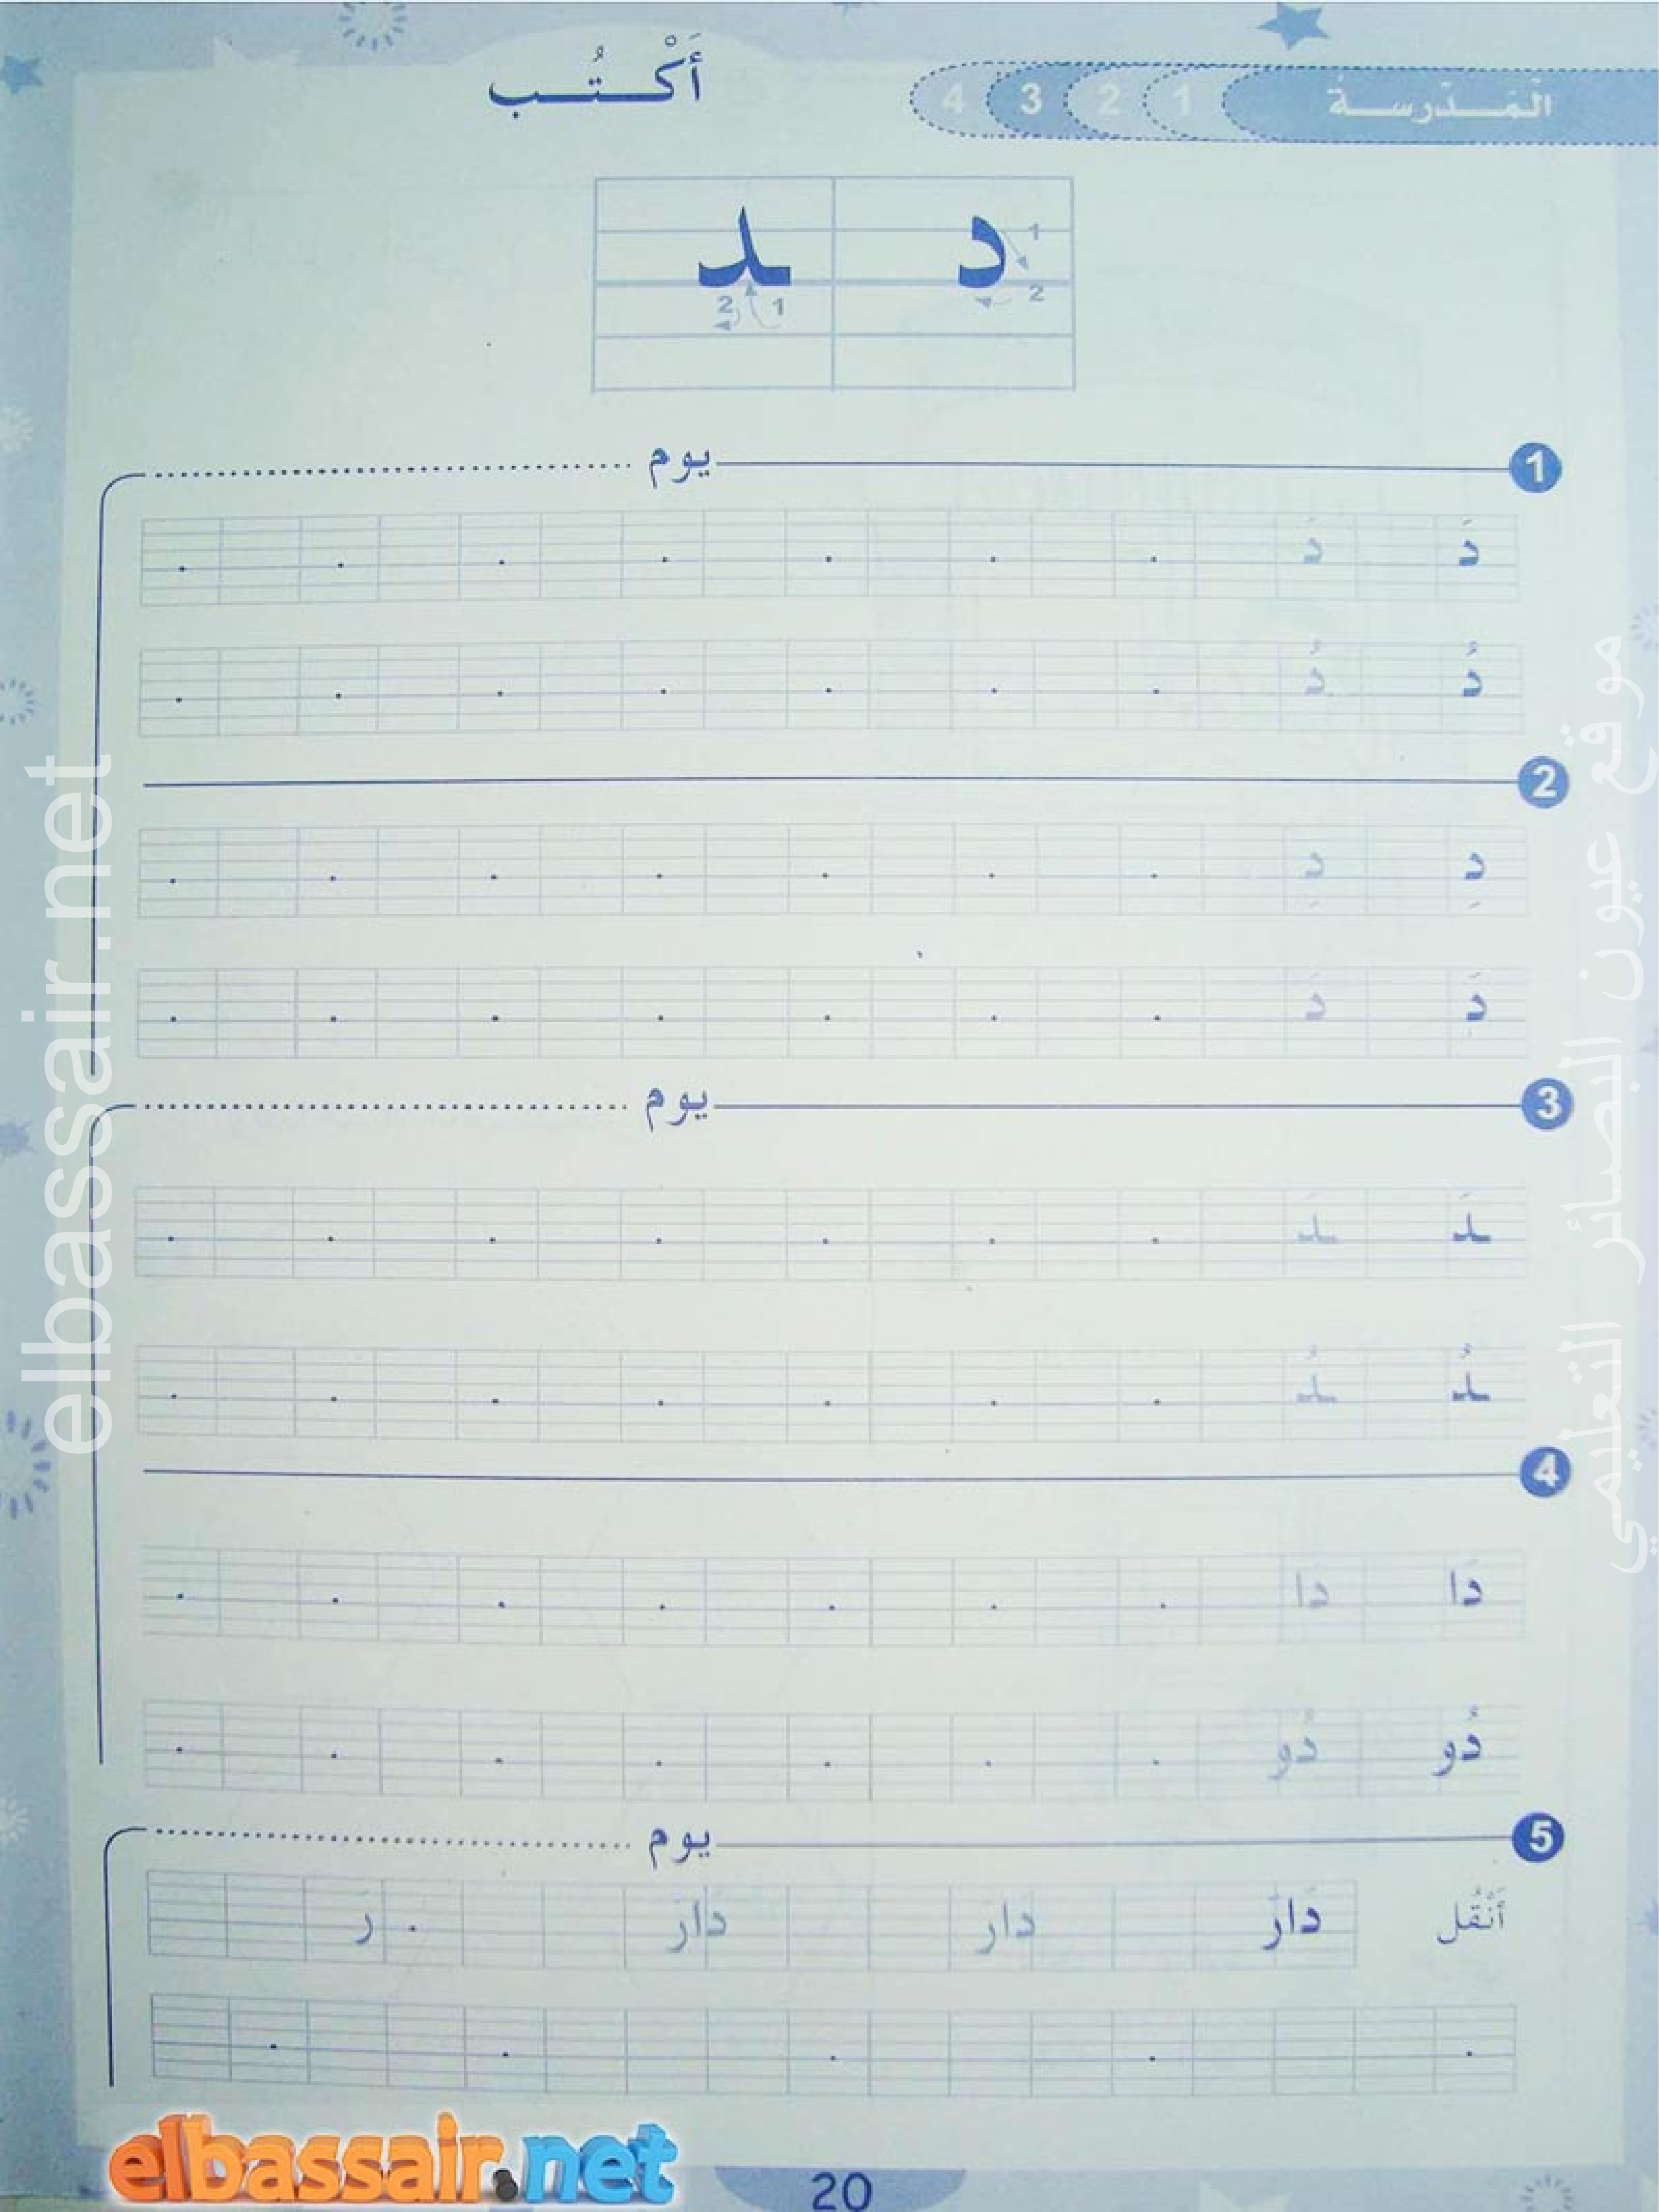 الْمَـــدْرسـةُ 1 2 3 4
أَكْـتُـب
د ـد
1 2 1 2
1 يوم
دَ دَ
دُ دُ
2
دِ دِ
دَ دَ
3 يوم
ـدَ ـدَ
ـدُ ـدُ
4
دَا دَا
دُو دُو
5 يوم
أَنْقُل دَارَ دَارَ دَارَ . رَ
elbassair.net
موقع عيون البصائر التعليمي
elbassair.net
20